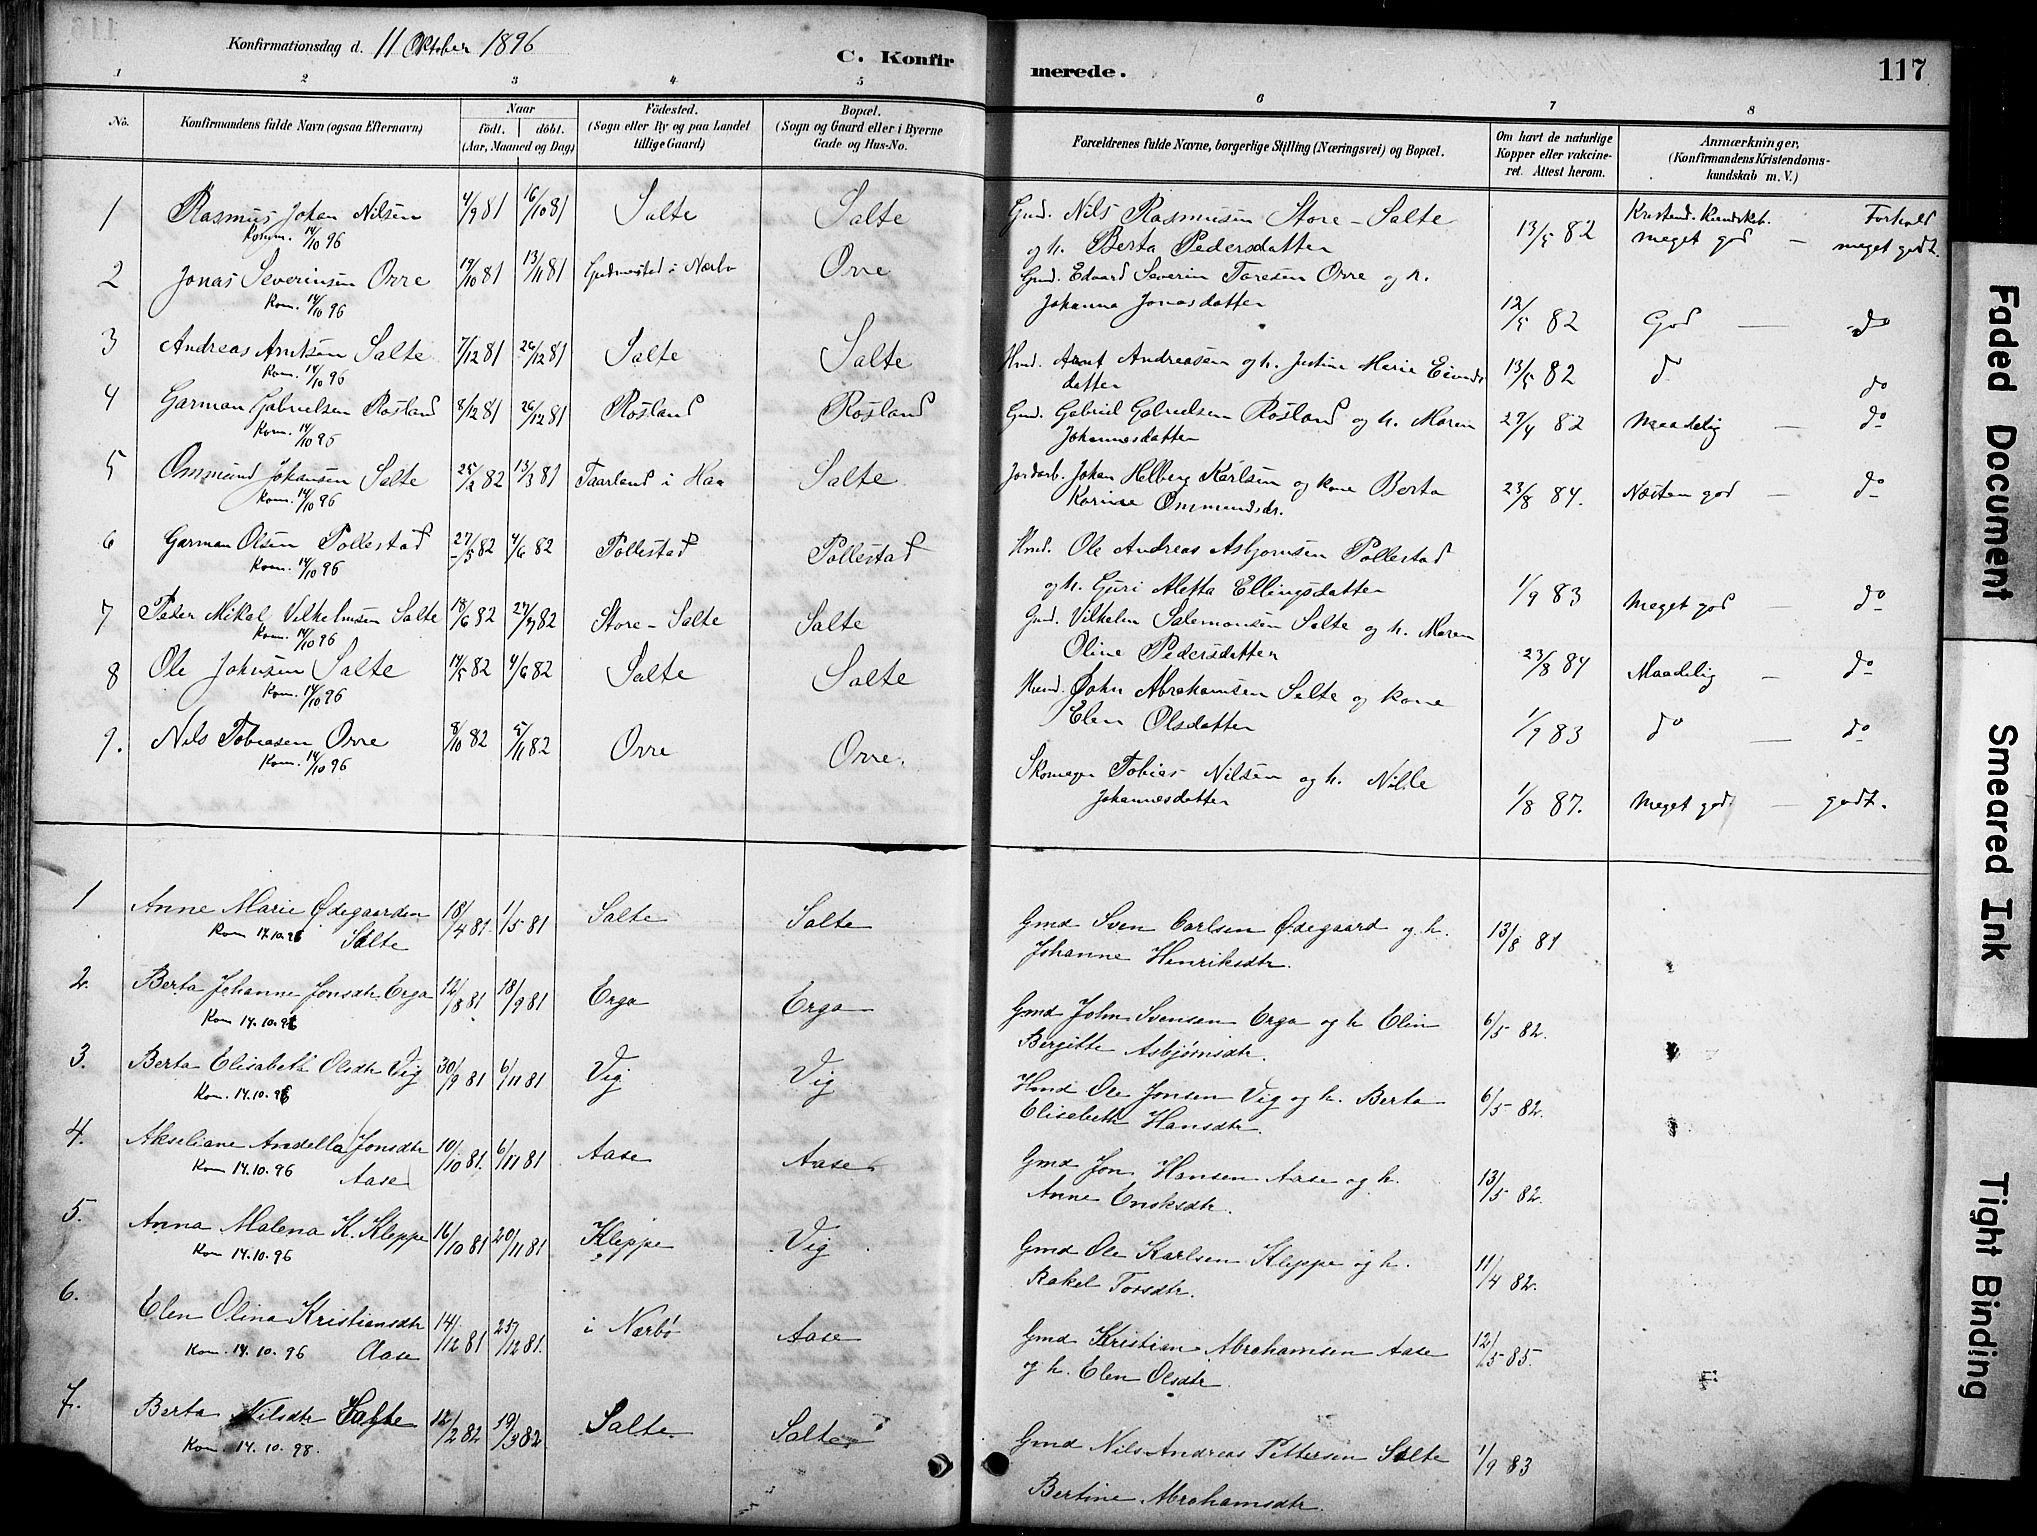 Konfirmationsdag d. 11 Oktober 1896
C. Konfirmerede.
117
1 2 3 4 5 6 7 8
No.
Konfirmandens fulde Navn (ogsaa Efternavn)
Naar
født. døbt.
(Aar, Maaned og Dag)
Födested.
(Sogn eller By og paa Landet
tillige Gaard)
Bopæl.
(Sogn og Gaard eller i Byerne
Gade og Hus-No.
Forældrenes fulde Navne, borgerlige Stilling (Næringsvei) og Bopæl.
Om havt de naturlige
Kopper eller vakcine-
ret. Attest herom.
Anmærkninger,
(Konfirmandens Kristendoms-
kundskab m. V.)
1 Rasmus Johan Nilsen 4/9 81 16/10 81 Salte Salte Gmd. Nils Rasmusen Store-Salte 13/5 82 Kristend. Kundskab. Forhold
Kom. 14/10 96 og h. Berta Pedersdatter meget god — meget godt.
2 Jonas Severinsen Orre 19/10 81 13/11 81 Gudmestad i Nærbø Orre Gmd. Edvard Severin Toresen Orre og h.
Kom. 14/10 96 Johanna Jonasdatter 12/5 82 God — do
3 Andreas Arntsen Salte 7/12 81 26/12 81 Salte Salte Hmd. Arnt Andreasen og h. Justine Marie Eivinds 13/5 82 do
Kom. 14/10 96 datter do
4 Garman Gabrielsen Rosland 8/12 81 26/12 81 Rosland Rosland Gmd. Gabriel Gabrielsen Rosland og h. Maren 27/4 82 Maadelig — do
Kom. 14/10 96 Johannesdatter
5 Ommund Johansen Salte 25/2 82 13/3 81 Taarland i Haa Salte Jordarb. Johan Helberg Karlsen og kone Berta 23/8 84. Næsten god — do
Kom. 14/10 96 Karine Ommundsdr.
6 Garman Olsen Pollestad 27/5 82 4/6 82 Pollestad Pollestad Hmd. Ole Andreas Asbjørnsen Pollestad
Kom. 14/10 96 og h. Guri Aletta Ellingsdatter 1/9 83 Meget god — do
7 Peder Mikal Vilhelmsen Salte 18/6 82 27/7 82 Store-Salte Salte Gmd. Vilhelm Salemonsen Salte og h. Maren
Kom. 14/10 96 Oline Pedersdatter 23/8 84 Maadelig — do
8 Ole Johnsen Salte 14/5 82 4/6 82 Salte Salte Hmd. John Abrahamsen Salte og kone
Kom. 14/10 96 Elen Olsdatter 1/9 83 do — do
9. Nils Tobiasen Orre 8/10 82 5/11 82 Orre Orre. Skomager Tobias Nilsen og h. Nille
Kom. 14/10 96 Johannesdatter 1/8 87. Meget god — godt.
1 Anne Marie Ødegaarden 18/4 81 1/5 81 Salte Salte Gmd Sven Carlsen Ødegaard og h. 13/8 81
Kom 14.10.96 Salte Johanne Henriksdtr.
2. Berta Johanne Jonsdtr Erga 12/8 81 18/9 81 Erga Erga Gmd John Svensen Erga og h Elin 6/5 82.
Kom 14.10.96 Bergitte Asbjørnsdtr.
3. Berta Elisabeth Olsdtr Vig 30/9 81 6/11 81 Vig Vig Hmd Ole Jonsen Vig og h. Berta 6/5 82.
Kom. 14.10.96 Elisabeth Hansdtr.
4. Akseliane Andella Jonsdtr 10/10 81. 6/11 81 Aase Aase Gmd Jon Hansen Aase og h. 13/5 82.
Kom 14.10.96 Aase Anne Eriksdtr.
5. Anna Malena K. Kleppe 16/10 81 20/11 81 Kleppe Vig Gmd Ole Karlsen Kleppe og h. 11/4 82.
Kom 14.10.96 Rakel Torsdtr.
6. Elen Olina Kristiansdtr 14/12 81 25/12 81. i Nærbø Aase Gmd Kristian Abrahamsen Aase 12/5 85.
Kom. 14.10.96 Aase og h. Elen Olsdtr.
7. Berta Nilsdtr Salte 12/2 82 19/3 82. Salte Salte Gmd Nils Andreas Pettersen Salte 1/9 83
Kom 14.10.98. Bertine Abrahamsdtr.
Faded Document
Smeared Ink
Tight Binding